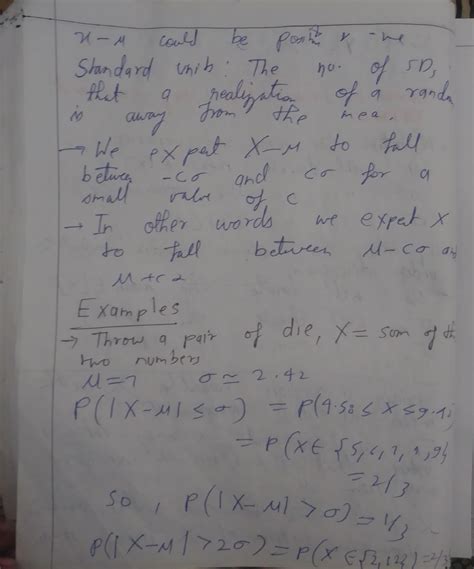 x-μ could be positi & -ve
Standard units: The no. of SD,
that a realization of a rando
is away from the mea.
→ We expect X-μ to fall
between -cσ and cσ for a
small value of c
→ In other words we expect X
to fall between μ-cσ an
μ+c
Examples
→ Throw a pair of die, X= som of th
two numbers
μ=7 σ≃2.42
P(|X-μ|≤σ) = P(4.58≤X≤9.42)
= P(X∈{5,6,7,8,9})
=2/3
so, P(|X-μ|>σ)=1/3
P(|X-μ|>2σ)=P(X∈{2,12})=2/3